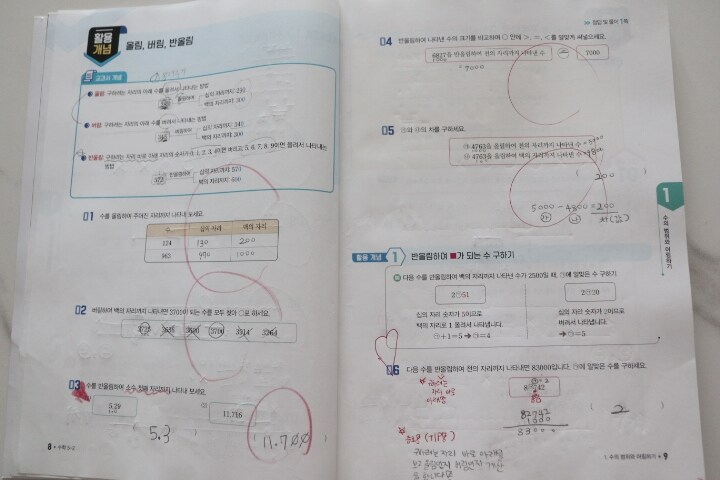 활용 개념
올림, 버림, 반올림
교과서 개념
올림: 구하려는 자리의 아래 수를 올려서 나타내는 방법
올림하여
십의 자리까지
백의 자리까지 300
버림: 구하려는 자리의 아래 수를 버려서 나타내는 방법
버림하여
십의 자리까지
백의 자리까지 300
반올림: 구하려는 자리 바로 아래 자리의 숫자가 0, 1, 2, 3, 4이면 버리고 5, 6, 7, 8, 9이면 올려서 나타내는
방법
반올림하여
십의 자리까지 570
백의 자리까지 600
01 수를 올림하여 주어진 자리까지 나타내 보세요.
수 십의 자리 백의 자리
124 130 200
965 970 1000
02 버림하여 백의 자리까지 나타내면 3700이 되는 수를 모두 찾아 ○로 하세요.
3725 3700 3814
03 수를 반올림하여 소수 첫째 자리까지 나타내 보세요.
5.29
(2) 11.716
( 5.3 )
( 11.700 )
8 • 수학 5-2
정답 및 풀이 1쪽
04 반올림하여 나타낸 수의 크기를 비교하여 ○ 안에 >, =, <를 알맞게 써넣으세요.
6827을 반올림하여 천의 자리까지 나타낸 수 = 7000
7000
05 ㉮와 ㉯의 차를 구하세요.
㉮ 4763을 올림하여 천의 자리까지 나타낸 수
㉯ 4763을 올림하여 백의 자리까지 나타낸 수
( 200 )
5000 - 4800 = 200
㉮ ㉯ 차(답)
활용 개념 1 반올림하여 ■가 되는 수 구하기
다음 수를 반올림하여 백의 자리까지 나타낸 수가 2500일 때, ㉠에 알맞은 수 구하기
2㉠51
2㉠30
십의 자리 숫자가 5이므로
백의 자리로 1 올려서 나타냅니다.
㉠+1=5 → ㉠=4
십의 자리 숫자가 3이므로
버려서 나타냅니다.
→ ㉠=5
06 다음 수를 반올림하여 천의 자리까지 나타내면 83000입니다. ㉠에 알맞은 수를 구하세요.
8㉠742
구하려는
자리 바로
아래를
82742
1000
83000
( 2 )
구하려는 자리 바로 아래를
보고
1
수의 범위와 어림하기
1. 수의 범위와 어림하기 • 9